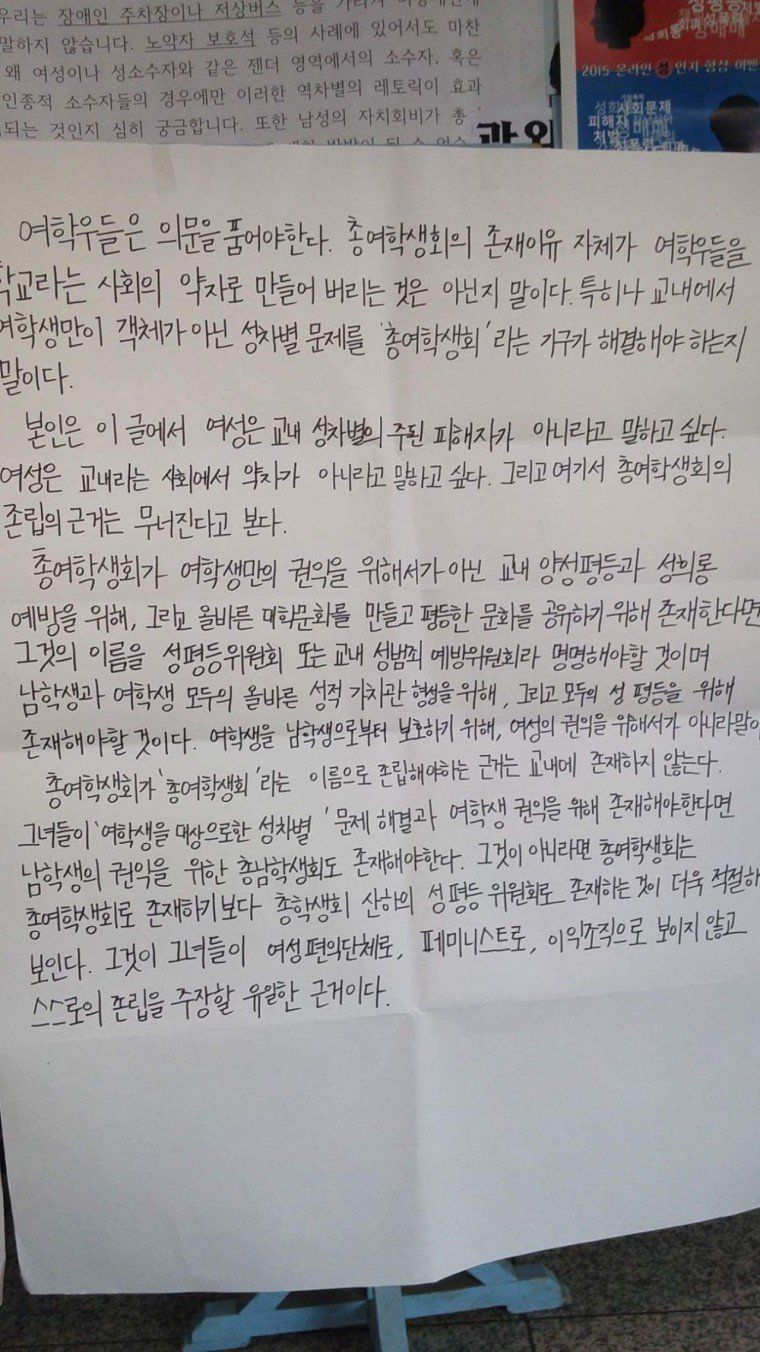 우리는 장애인 주차장이나 저상버스 등을
말하지 않습니다. 노약자 보호석 등의 사례에 있어서도 마찬
왜 여성이나 성소수자와 같은 젠더 영역에서의 소수자, 혹은
인종적 소수자들의 경우에만 이러한 역차별의 레토릭이 효과
되는 것인지 심히 궁금합니다. 또한 남성의 자치회비가 총
2015 온라인 성 인지 향상 이벤
사회문제
피해자
처벌
여학우들은 의문을 품어야한다. 총여학생회의 존재이유 자체가 여학우들을
학교라는 사회의 약자로 만들어 버리는 것은 아닌지 말이다. 특히나 교내에서
여학생만이 객체가 아닌 성차별 문제를 '총여학생회'라는 기구가 해결해야 하는지
말이다.
본인은 이 글에서 여성은 교내 성차별의 주된 피해자가 아니라고 말하고 싶다.
여성은 교내라는 사회에서 약자가 아니라고 말하고 싶다. 그리고 여기서 총여학생회의
존립의 근거는 무너진다고 본다.
총여학생회가 여학생만의 권익을 위해서가 아닌 교내 양성평등과 성희롱
예방을 위해, 그리고 올바른 대학문화를 만들고 평등한 문화를 공유하기 위해 존재한다면
그것의 이름을 성평등위원회 또는 교내 성범죄 예방위원회라 명명해야할 것이며
남학생과 여학생 모두의 올바른 성적 가치관 형성을 위해, 그리고 모두의 성 평등을 위해
존재해야할 것이다. 여학생을 남학생으로부터 보호하기 위해, 여성의 권익을 위해서가 아니라말이
총여학생회가 '총여학생회'라는 이름으로 존립해야하는 근거는 교내에 존재하지 않는다.
그녀들이 '여학생을 대상으로한 성차별' 문제 해결과 여학생 권익을 위해 존재해야한다면
남학생의 권익을 위한 총남학생회도 존재해야한다. 그것이 아니라면 총여학생회는
총여학생회로 존재하기보다 총학생회 산하의 성평등 위원회로 존재하는 것이 더욱 적절해
보인다. 그것이 그녀들이 여성편의단체로, 페미니스트로, 이익조직으로 보이지 않고
스스로의 존립을 주장할 유일한 근거이다.